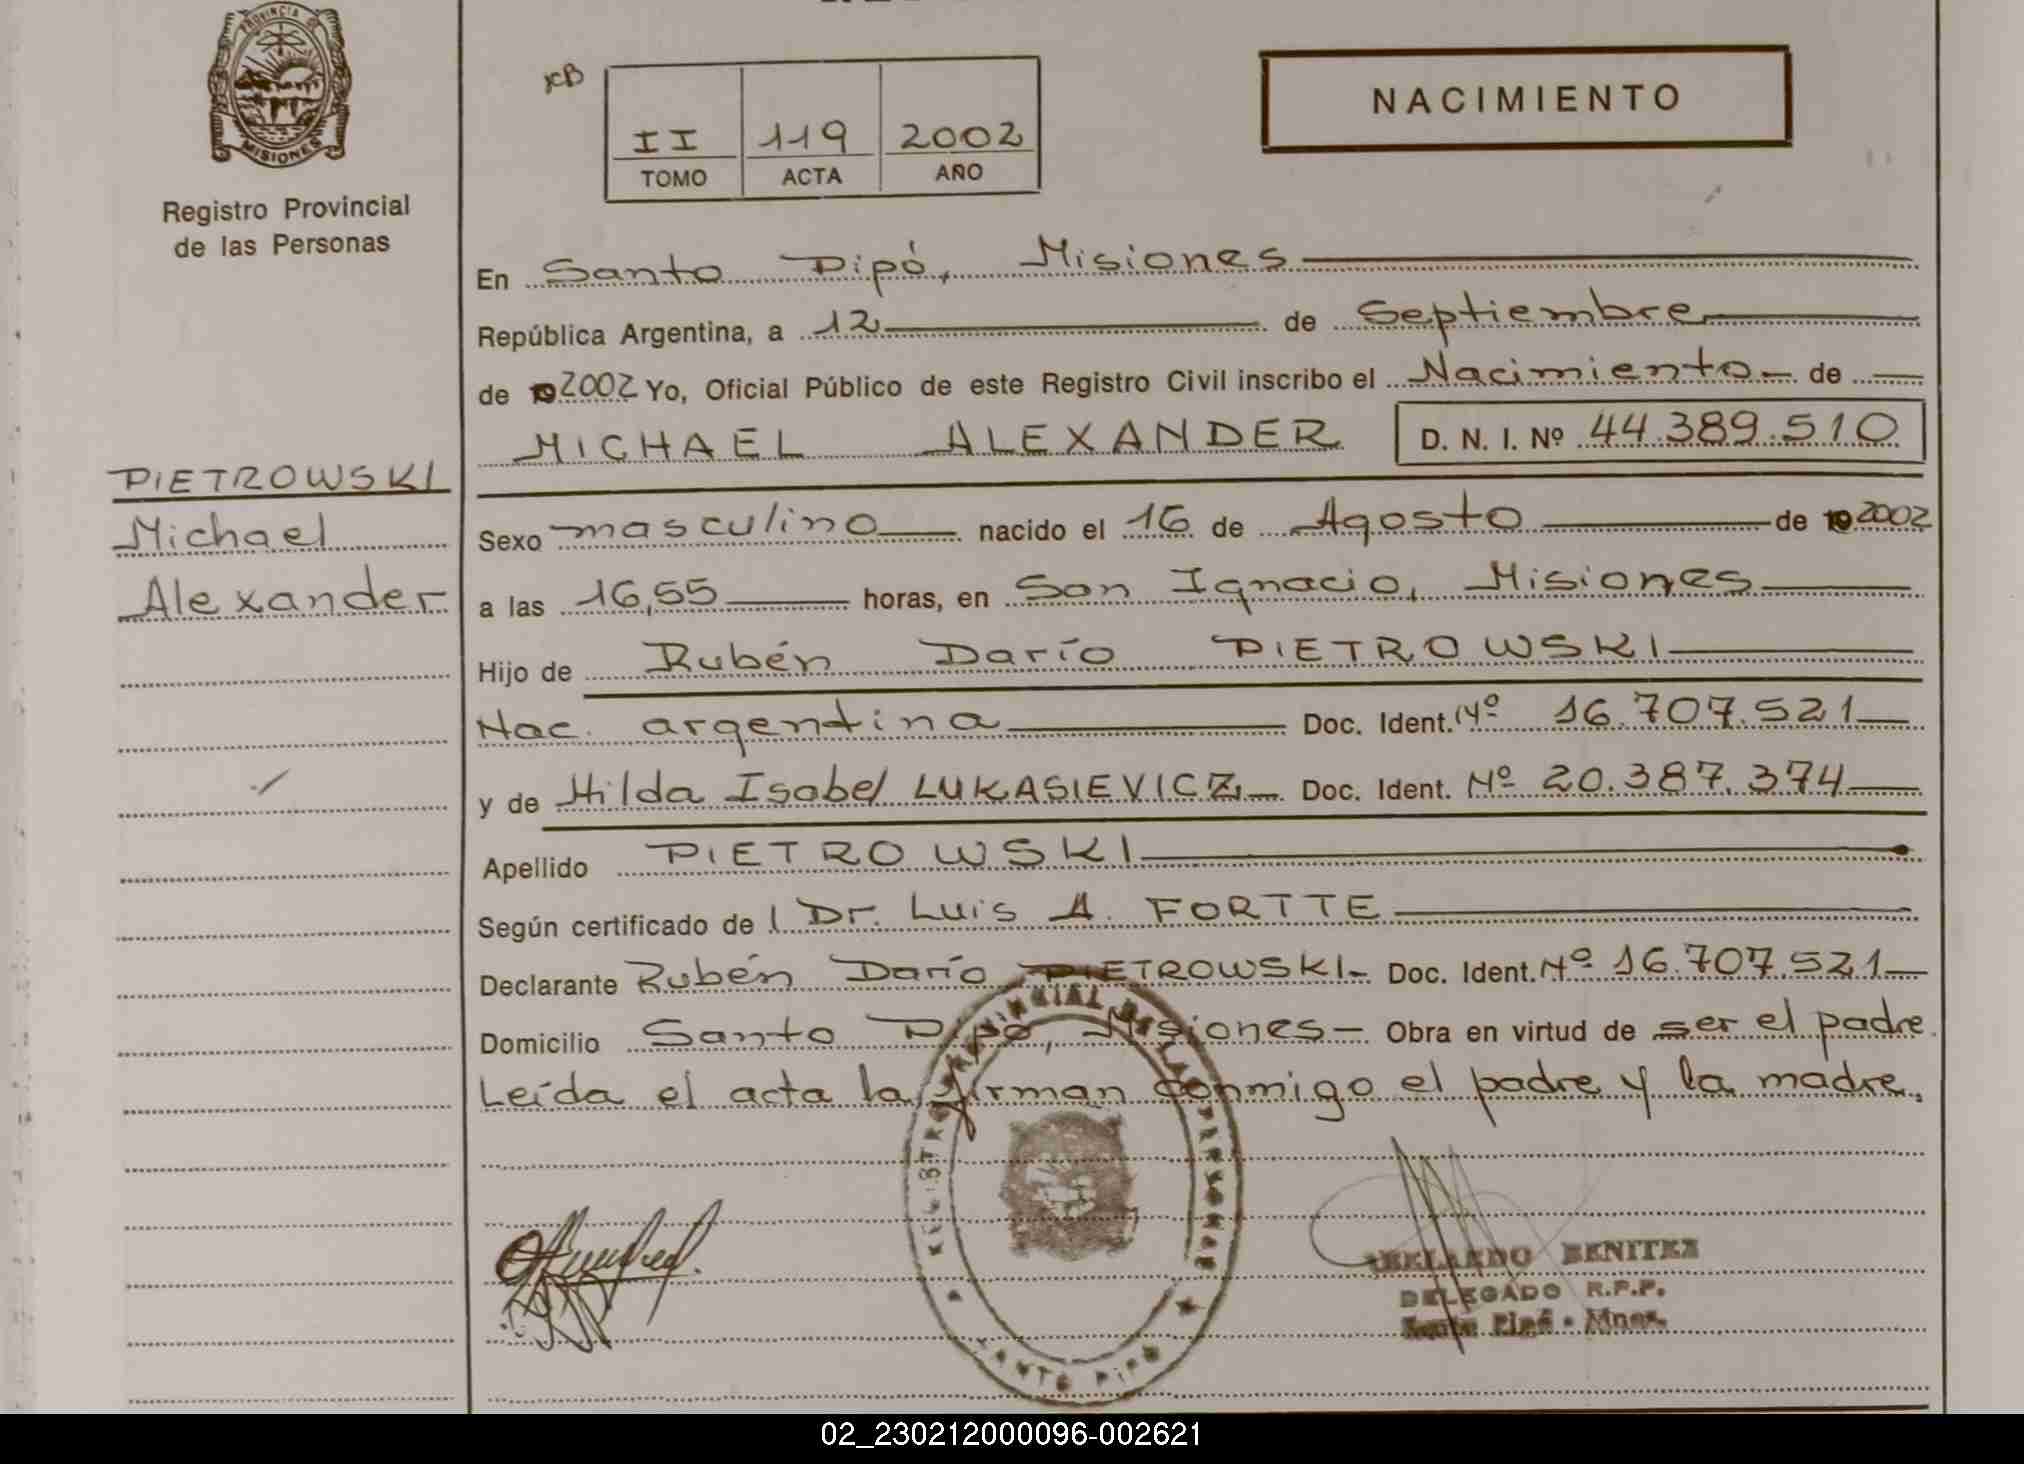 PROVINCIA DE
MISIONES
Registro Provincial
de las Personas
II 119 2002
TOMO ACTA AÑO
NACIMIENTO
En Santo Pipó, Misiones
República Argentina, a 12 de Septiembre
de 2002 Yo, Oficial Público de este Registro Civil inscribo el Nacimiento de
MICHAEL ALEXANDER D. N. I. Nº 44.389.510
PIETROWSKI
Michael
Alexander
Sexo masculino nacido el 16 de Agosto de 2002
a las 16,55 horas, en San Ignacio, Misiones
Hijo de Rubén Darío PIETROWSKI
Nac. argentina Doc. Ident. Nº 16.707.521
y de Hilda Isabel LUKASIEVICZ Doc. Ident. Nº 20.387.374
Apellido PIETROWSKI
Según certificado de l Dr. Luis A. FORTTE
Declarante Rubén Darío PIETROWSKI Doc. Ident. Nº 16.707.521
Domicilio Santo Pipó, Misiones Obra en virtud de ser el padre.
Leída el acta la firman conmigo el padre y la madre.
REGISTRO PROVINCIAL DE LAS PERSONAS
SANTO PIPO
ABELARDO BENITEZ
DELEGADO R.P.P.
Santo Pipó - Mnes.
02_230212000096-002621